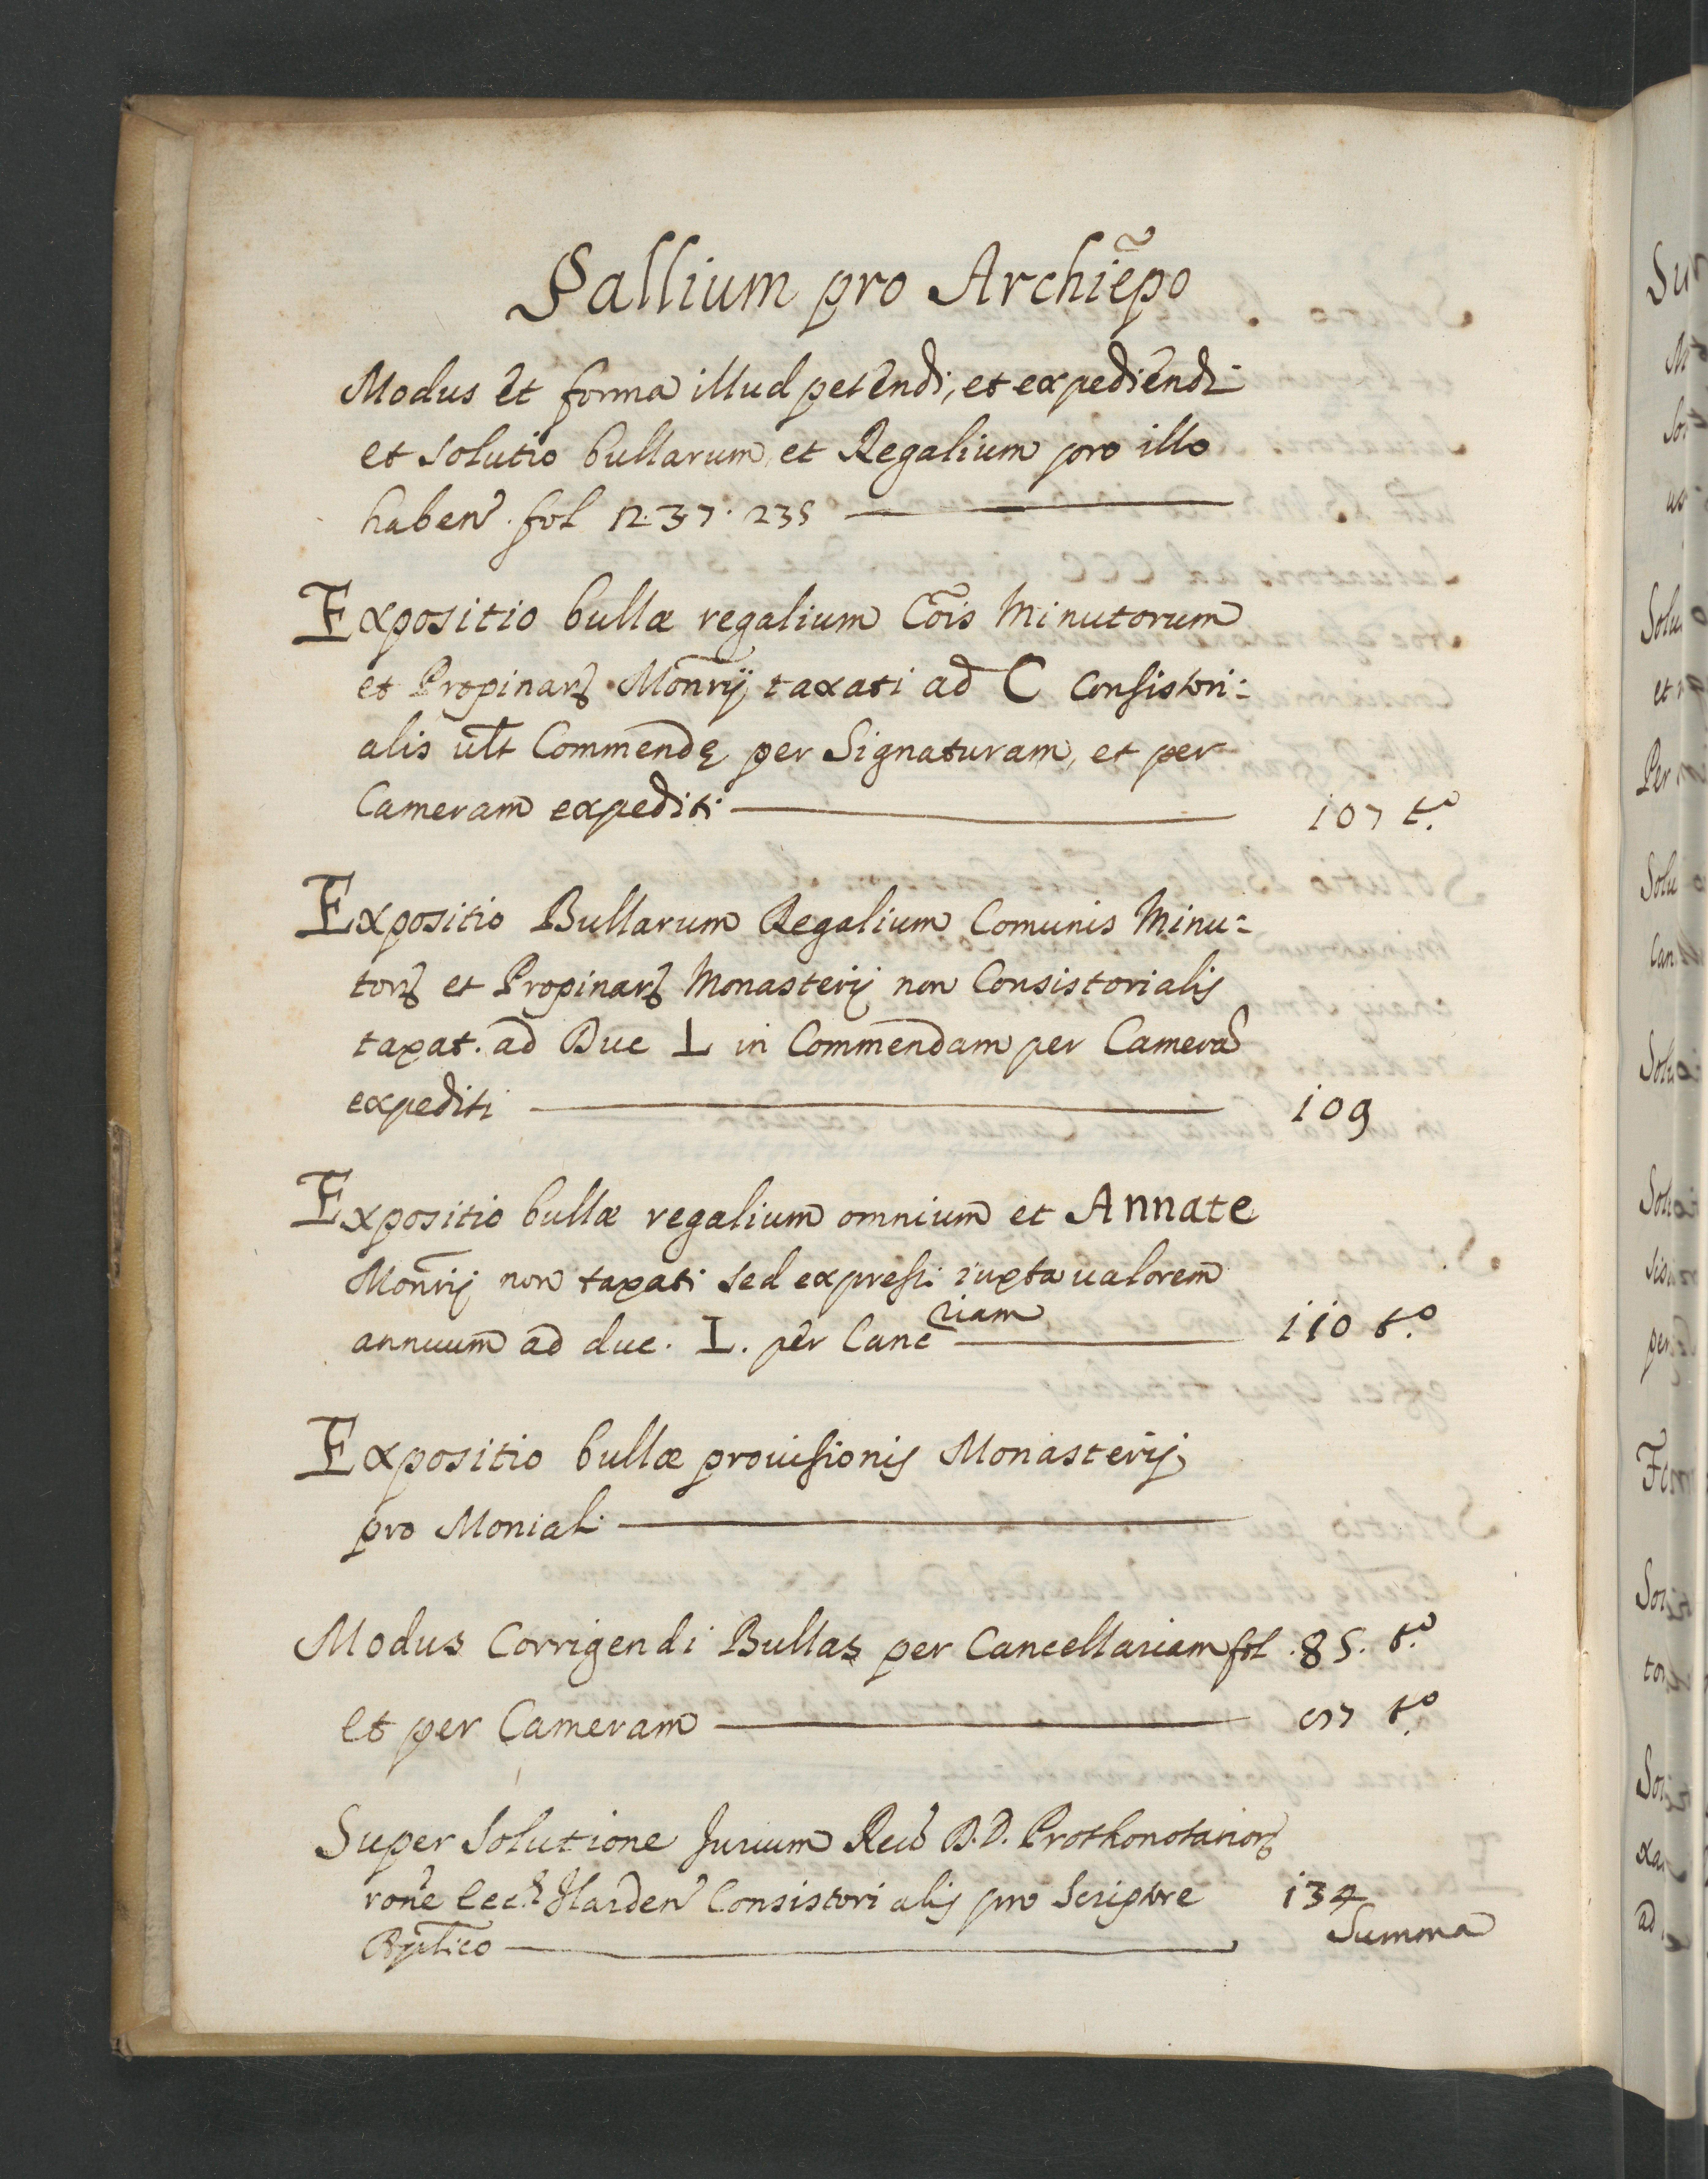 Pallium pro Archiepõ
Modus et forma illud petendi, et expediendi
et solutio bullarum, et Regalium pro illo
haben. fol 12. 37. 235
Expositio bullæ regalium Cõis Minutorum
et Propinarꝝ Monrij taxati ad C Consistori:
alis ult Commendę per Signaturam, et per
Cameram expediti 107 t.º
Expositio Bullarum Regalium Comunis Minu:
torꝝ et Propinarꝝ Monasterij non Consistorialis
taxat. ad Duc L in Commendam per Camerã
expediti 109
Expositio bullæ regalium omnium et Annate
Monrij non taxati sed expressi iuxta ualorem
annuum ad duc. L. per Canc riam 110 t.º
Expositio bullæ prouisionis Monasterij
pro Monial.
Modus Corrigendi Bullas per Cancellariam fol .85. t.º
et per Cameram 97 t.º
Super Solutione Jurium D.D. Prothonotariorꝝ
rone Consistorialis pro Scriptore
134
Summa